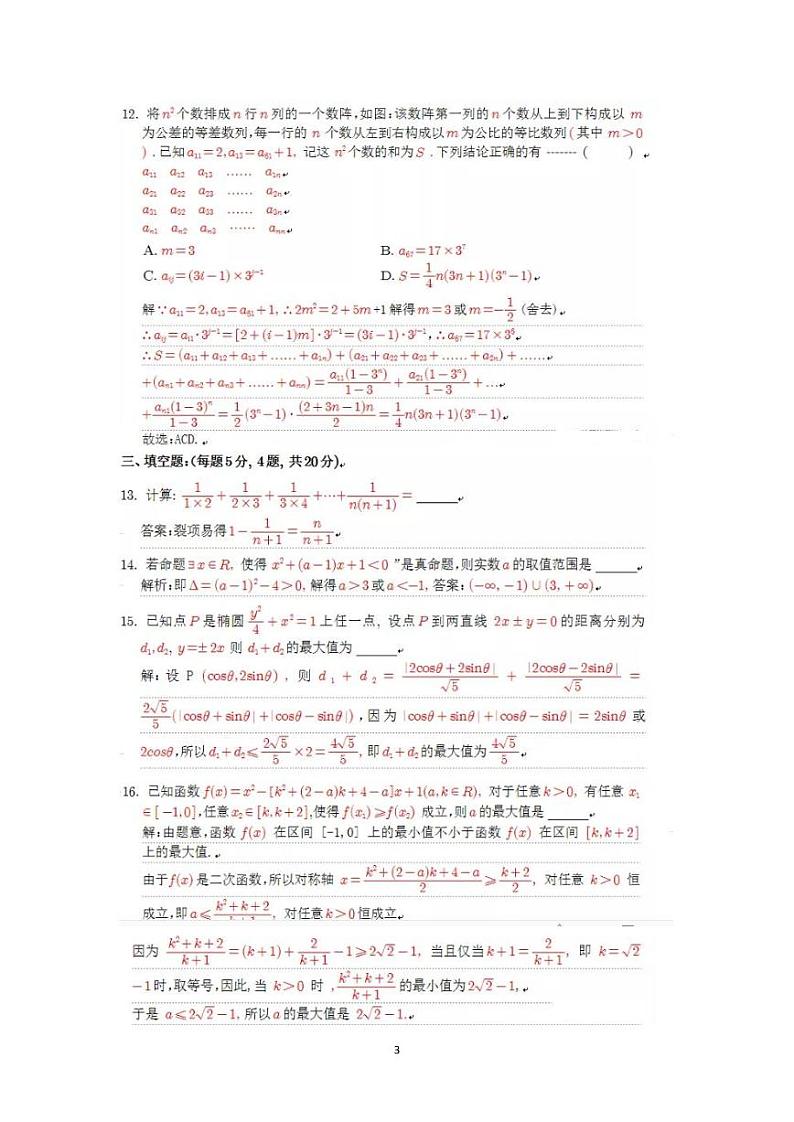 12. 将n²个数排成n行n列的一个数阵,如图:该数阵第一列的n个数从上到下构成以 m
为公差的等差数列,每一行的 n 个数从左到右构成以m为公比的等比数列(其中 m>0
).已知a₁₁=2,a₁₃=a₆₁+1, 记这 n²个数的和为S .下列结论正确的有 ------- (   )
a₁₁ a₁₂ a₁₃ …… a₁ₙ
a₂₁ a₂₂ a₂₃ …… a₂ₙ
a₃₁ a₃₂ a₃₃ …… a₃ₙ
aₙ₁ aₙ₂ aₙ₃ …… aₙₙ
A. m=3 B. a₆₇=17×3⁷
C. a_{ij}=(3i-1)×3^{j-1} D. S=1/4 n(3n+1)(3ⁿ-1)
解∵a₁₁=2,a₁₃=a₆₁+1,∴2m²=2+5m+1解得m=3或m=-1/2 (舍去)
∴a_{ij}=a_{i1}·3^{j-1}=[2+(i-1)m]·3^{j-1}=(3i-1)·3^{j-1},∴a₆₇=17×3⁶
∴S=(a₁₁+a₁₂+a₁₃+……+a₁ₙ)+(a₂₁+a₂₂+a₂₃+……+a₂ₙ)+……
+(aₙ₁+aₙ₂+aₙ₃+……+aₙₙ)=a₁₁(1-3ⁿ)/(1-3)+a₂₁(1-3ⁿ)/(1-3)+…
+aₙ₁(1-3)ⁿ/(1-3)=1/2(3ⁿ-1)·(2+3n-1)n/2=1/4 n(3n+1)(3ⁿ-1)
故选:ACD.
三、填空题:(每题5分, 4题, 共20分).
13. 计算: 1/(1×2)+1/(2×3)+1/(3×4)+…+1/(n(n+1))=______
答案:裂项易得1-1/(n+1)=n/(n+1)
14. 若命题∃x∈R, 使得 x²+(a-1)x+1<0 ”是真命题,则实数a的取值范围是 ______
解析:即Δ=(a-1)²-4>0,解得a>3或a<-1,答案:(-∞,-1)∪(3,+∞)
15. 已知点P是椭圆y²/4+x²=1上任一点, 设点P到两直线 2x±y=0的距离分别为
d₁,d₂, y=±2x 则 d₁+d₂的最大值为 ______
解: 设 P (cosθ,2sinθ) , 则 d₁+d₂=|2cosθ+2sinθ|/√5 + |2cosθ-2sinθ|/√5 =
2√5/5(|cosθ+sinθ|+|cosθ-sinθ|) ,因为 |cosθ+sinθ|+|cosθ-sinθ|=2sinθ 或
2cosθ,所以d₁+d₂≤2√5/5×2=4√5/5, 即d₁+d₂的最大值为4√5/5
16. 已知函数f(x)=x²-[k²+(2-a)k+4-a]x+1(a,k∈R), 对于任意k>0, 有任意 x₁
∈[-1,0],任意x₂∈[k,k+2],使得 f(x₁)≥f(x₂) 成立,则a的最大值是 ______
解:由题意,函数 f(x) 在区间 [-1,0] 上的最小值不小于函数 f(x) 在区间 [k,k+2]
上的最大值.
由于f(x)是二次函数,所以对称轴 x=(k²+(2-a)k+4-a)/2≥(k+2)/2, 对任意 k>0 恒
成立,即a≤(k²+k+2)/(k+1), 对任意k>0恒成立
因为 (k²+k+2)/(k+1)=(k+1)+2/(k+1)-1≥2√2-1, 当且仅当k+1=2/(k+1), 即 k=√2
-1时,取等号,因此,当 k>0 时 ,(k²+k+2)/(k+1)的最小值为2√2-1,
于是 a≤2√2-1,所以a的最大值是 2√2-1.
3